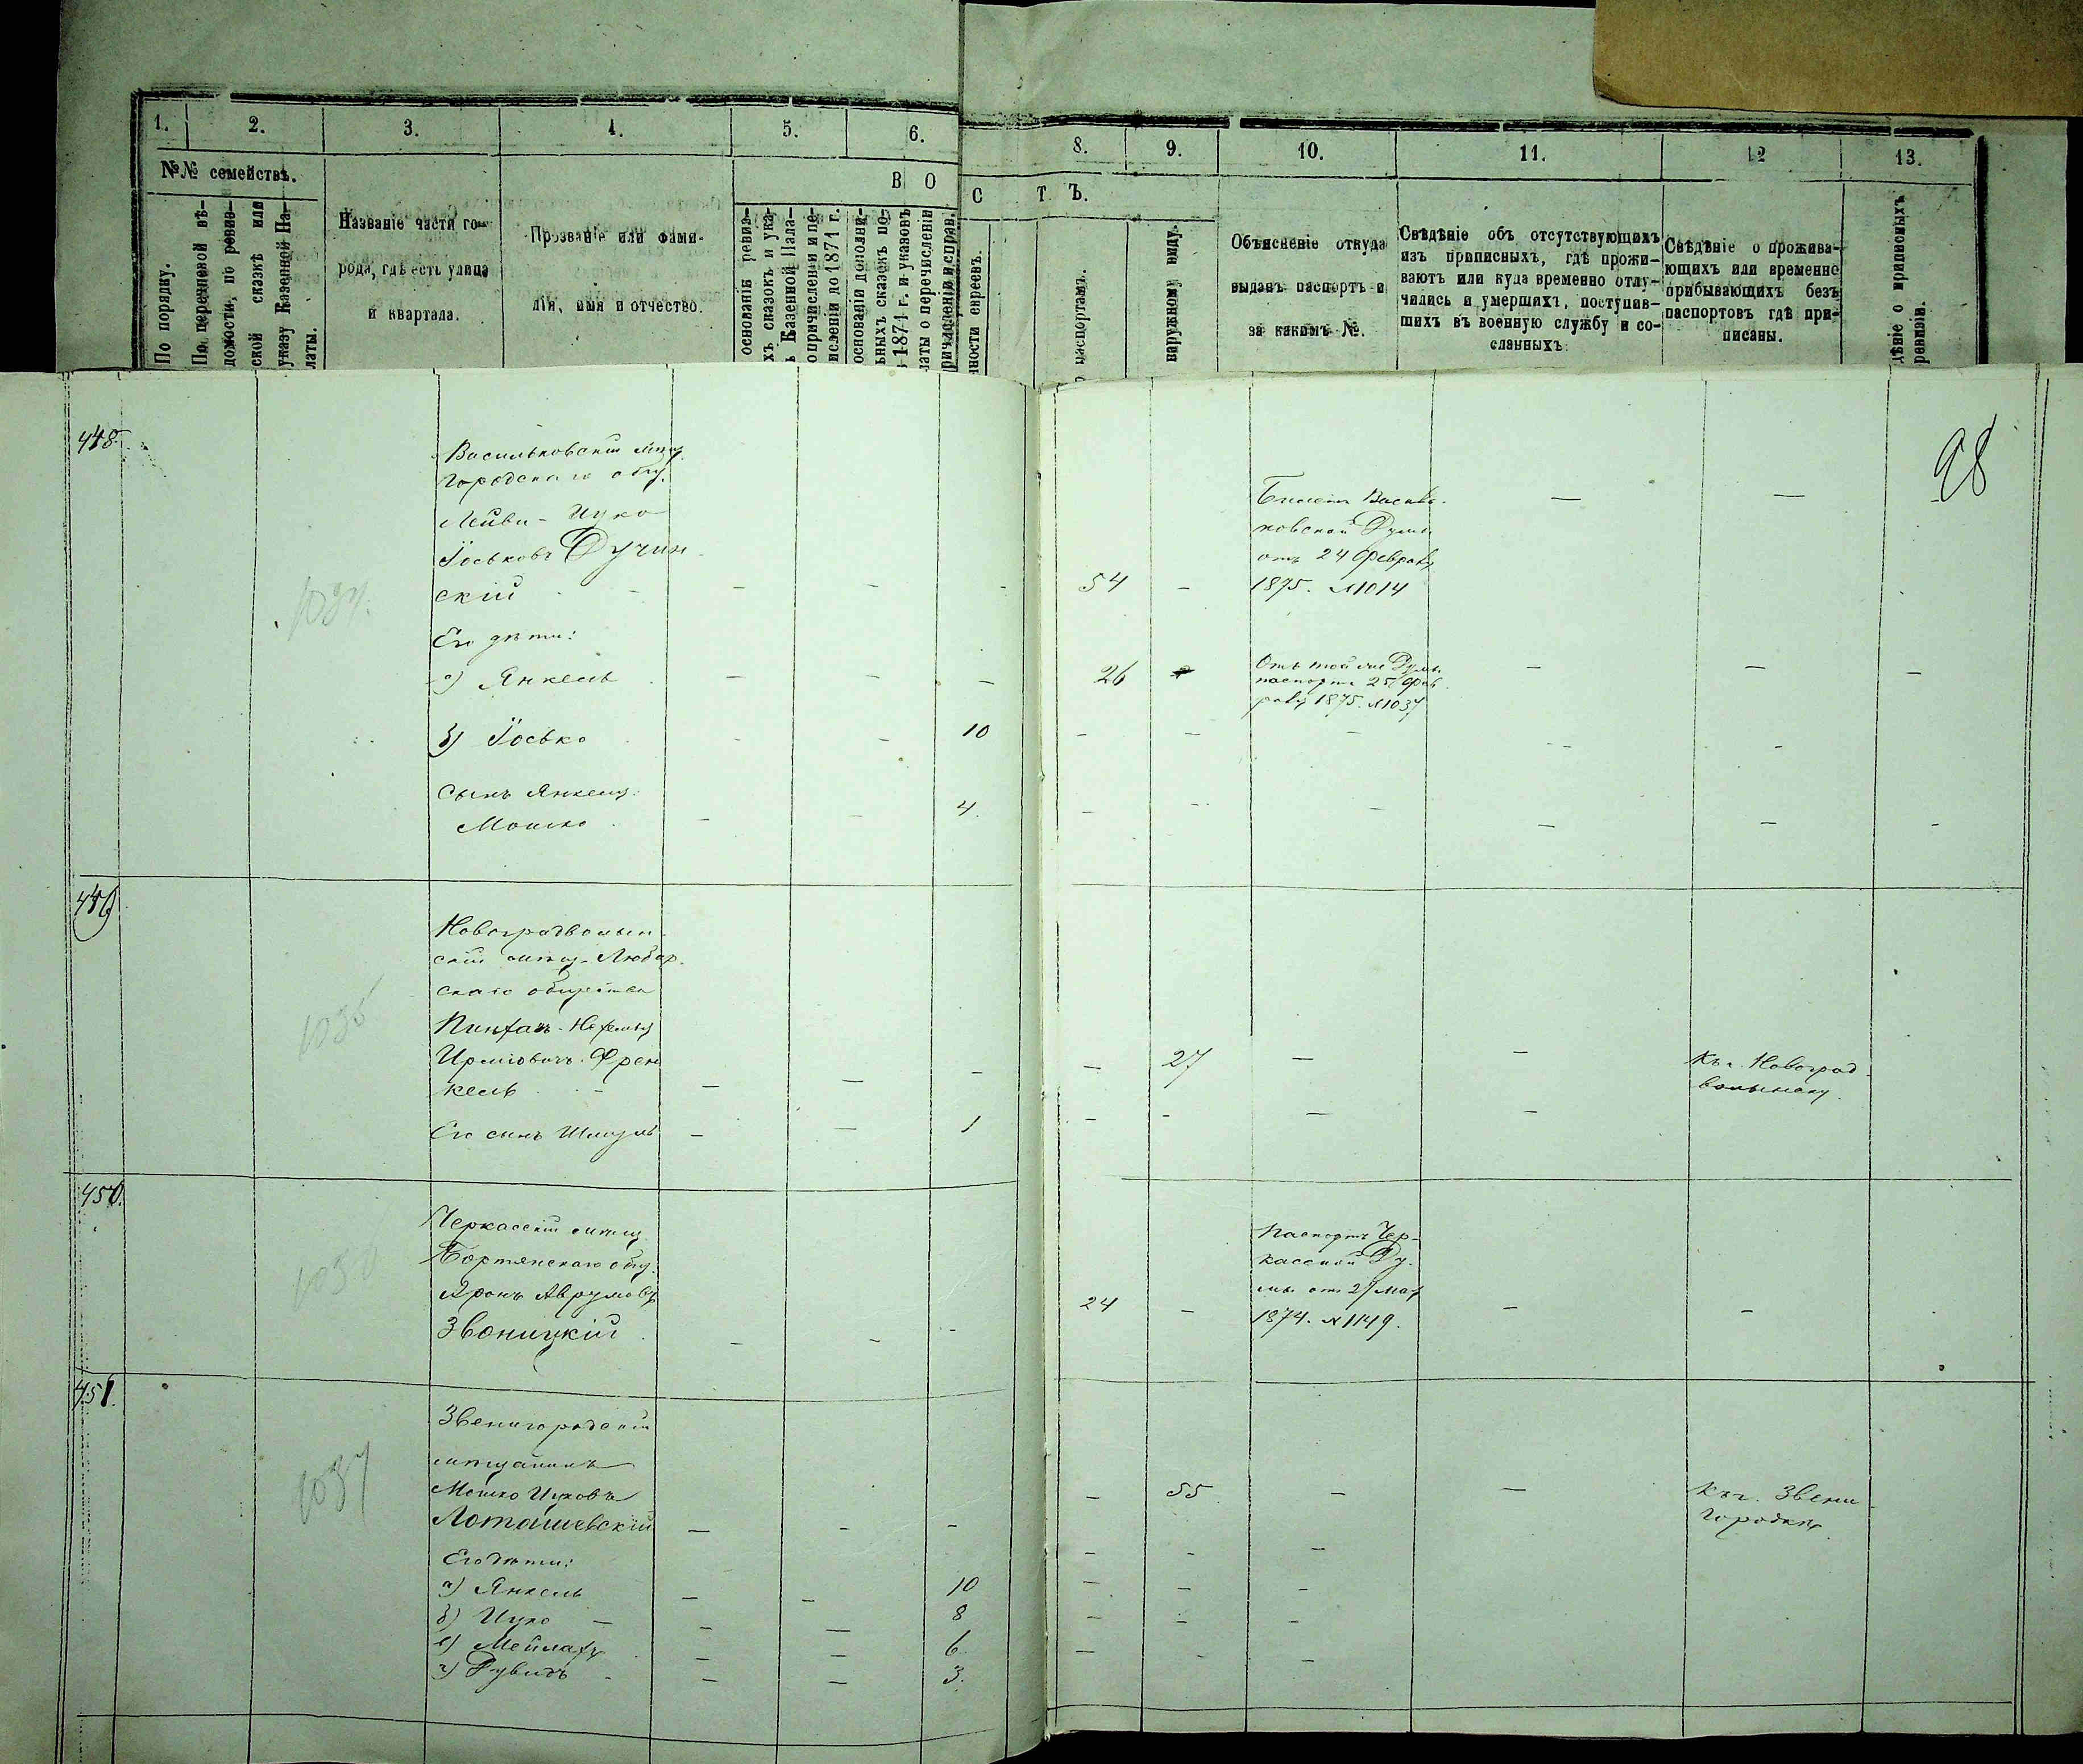 1.
2.
3.
4.
5.
6.
8.
9.
10.
11.
12
13.
№№ семействъ.
В О
С Т Ъ.
По порядку.
По перечневой вѣ-
домости, по ревиз-
ской сказкѣ или
указу Казенной Па-
латы.
Названіе части го-
рода, гдѣ есть улица
и квартала.
Прозваніе или фами-
лія, имя и отчество.
основаніи ревиз-
хъ сказокъ и ука-
ъ Казенной Пала-
о причисленіи и пе-
исленіи до 1871 г.
основаніи дополни-
ьныхъ сказокъ по-
1871 г. и указовъ
латы о перечисленіи
причисленіи и справ.
ности евреевъ.
о паспортамъ.
наружному виду.
Объясненіе откуда
выданъ паспортъ и
за какимъ №.
Свѣдѣніе объ отсутствующихъ
изъ приписныхъ, гдѣ прожи-
ваютъ или куда временно отлу-
чились и умершихъ, поступив-
шихъ въ военную службу и со-
сланныхъ
Свѣдѣніе о прожива-
ющихъ или временно
прибывающихъ безъ
паспортовъ гдѣ при-
писаны.
дѣніе о приписныхъ
ревизіи.
98
448.
1034.
Васильковскій мѣщ.
Городскаго общ.
Лейви-Ицко
Іоськовъ Дучин
скій - - - - 54 -
Билетъ Василь-
ковской Думы
отъ 24 Февраля
1875. №1014
— —
Его дѣти:
а) Янкель — — — 26
Отъ той же Думы
паспортъ 25 Фев
раля 1875. №1037
— — —
б) Іосько - — 10 — — — - - -
Сынъ Янкеля:
Мошко — — 4. — — — — — —
449
1035
Новоградволын-
скій мѣщ. Любар.
скаго общества
Пинхас-Нефтель
Ирміовичъ Френ
кель — — — — 27 — —
Къ г. Новоград-
волынску.
Его сынъ Шмуль — — 1 — - — —
450.
1036
Черкасскій мѣщ.
Бортянскаго общ.
Аронъ Аврумовъ
Звоницкій — — - 24 —
Паспортъ Чер-
касской Ду-
мы отъ 27 мая
1874. №1149.
— —
451.
1037
Звенигородскій
мѣщанинъ
Мошко Ицковъ
Лоташевскій — - — — 55 — —
Къ г. Звени-
городкѣ
Его дѣти:
а) Янкель — — 10
б) Ицко — — — 8
в) Мейлахъ — — 6
г) Рувинъ — — 3.